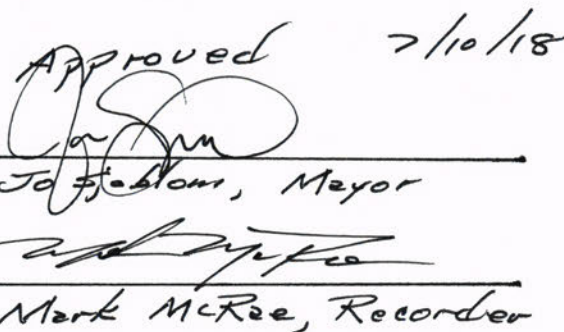 Approved 7/10/18
Jo Sjoblom, Mayor
Mark McRae, Recorder